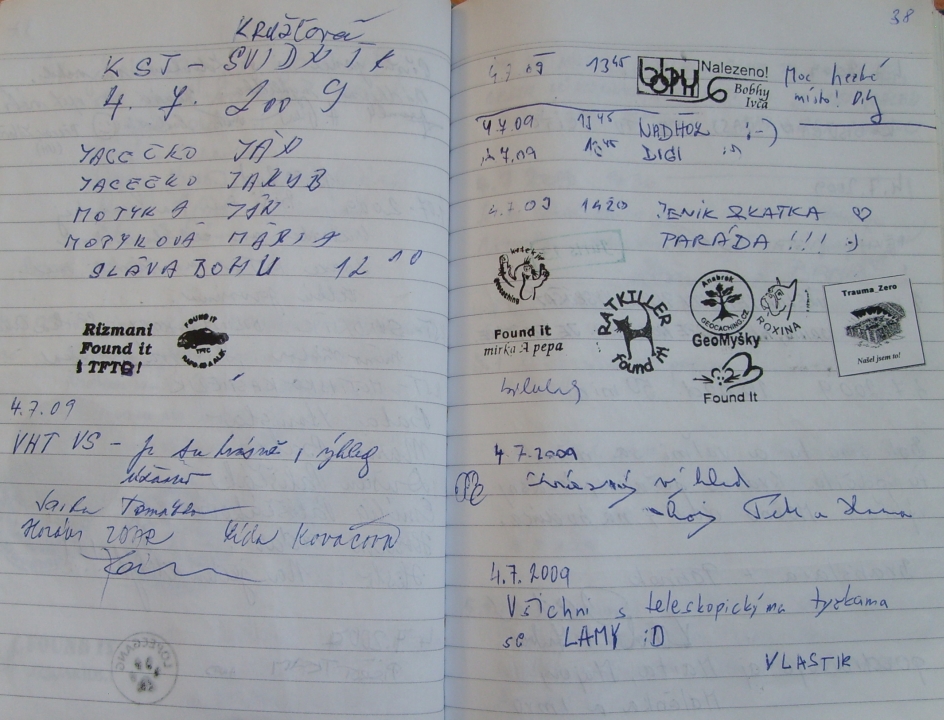 KST - SVIDNÍK
4. 7. 2009
JACEČKO JÁN
JACEČKO JAKUB
MOTYKA JÁN
MOTYKOVÁ MÁRIA
SLÁVA BOHU 12 10
Rizmani
Found it
! TFTC !
FOUND IT
TFTC
4.7.09
VHT VS - Je tu krásně, výhled
Kovácová
LOPEEGANG
38
4.7.09 13 45 bobhy Nalezeno!
Bobhy
Ivča
Moc hezké
místo!
4.7.09 1345 NADHOZ :-)
4.7.09 1345 DIGI
4.7.09 1420 JENIK ZKATKA ♡
PARÁDA !!! :-)
geocaching
Found it
mirka A pepa
RATKILLER
Found it!
Anabrek
GEOCACHING.CZ
GeoMyšky
Found It
ROXINA
Trauma_Zero
Našel jsem to!
4.7.2009
výhled
4.7.2009
Všichni s teleskopickýma tyckama
se LAMY :D
VLASTIK